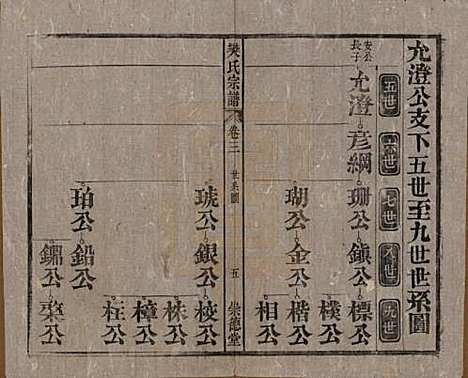 允澄公支下五世至九世世系圖
五世 六世 七世 八世 九世
安公長子
允澄 彦綱 珊公 鎮公 標公
樸公
瑚公 金公 楷公
相公
琥公 銀公 校公
株公
樟公
柱公
珀公 鉛公
鏽公 棗公
樊氏宗譜 卷三 世系圖 五 崇德堂